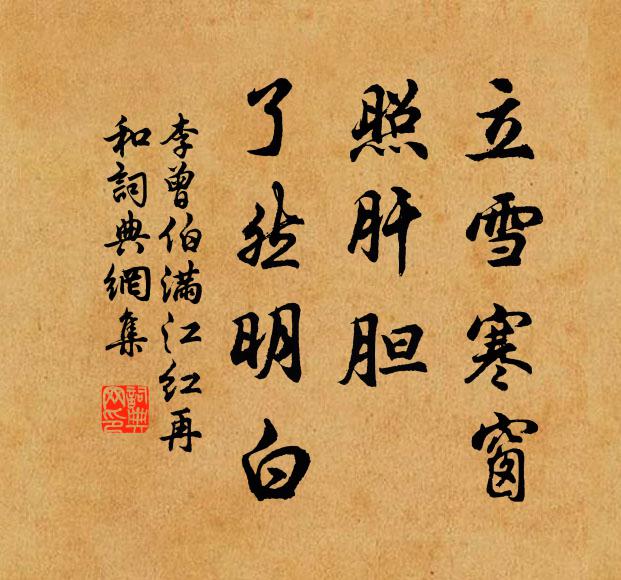 立雪寒窗
照肝胆
了然明白
李曾伯满江红再
和詞典網集
詞典
网印